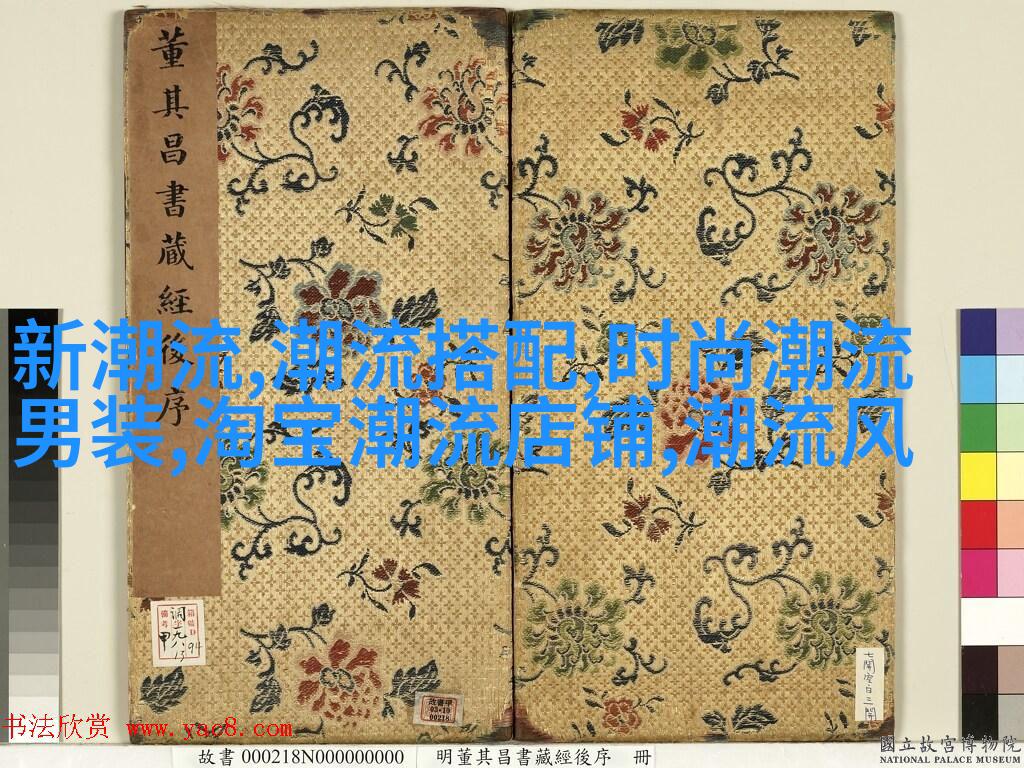 董其昌書藏經後序
新潮流,潮流搭配,时尚潮流
男装,淘宝潮流店铺,潮流风
箱號D
備考
調一九八
甲 13
94
故書甲
03-10
00218
七開空白三開
书法欣赏 www.yac8.com
故書 000218N000000000 明董其昌書藏經後序 冊
國立故宮博物院
NATIONAL PALACE MUSEUM